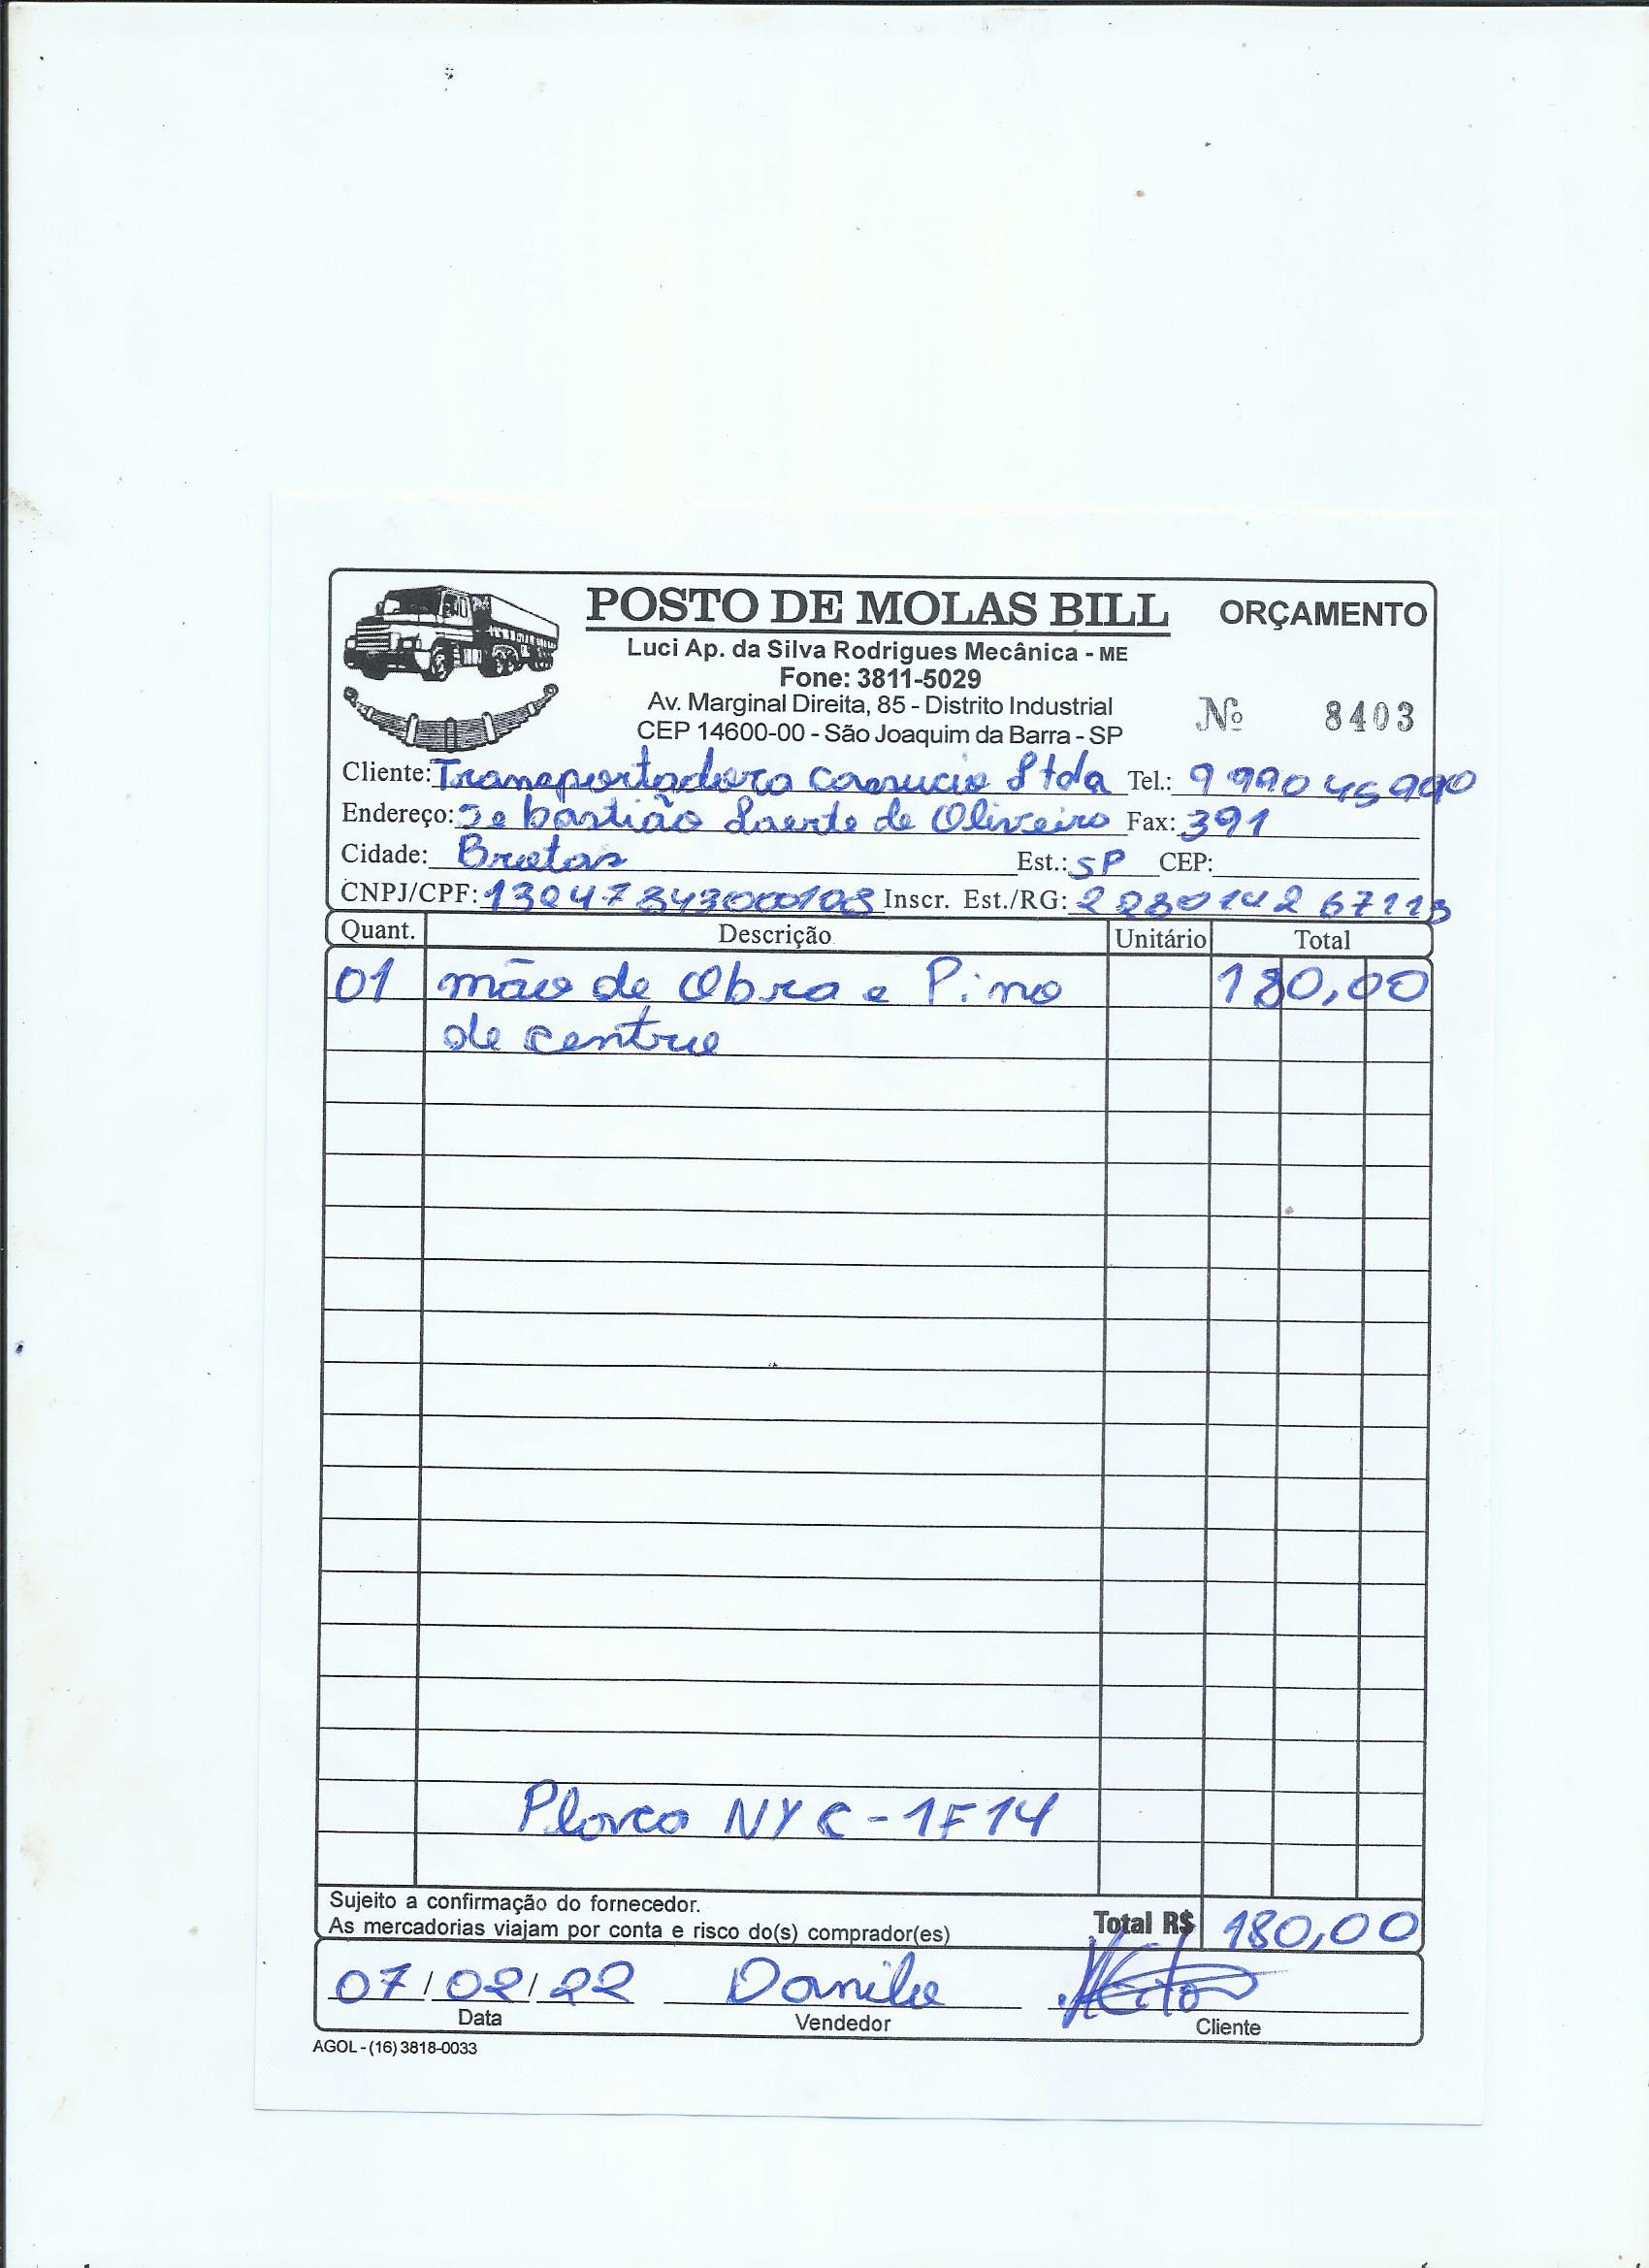 POSTO DE MOLAS BILL ORÇAMENTO
Luci Ap. da Silva Rodrigues Mecânica - ME
Fone: 3811-5029
Av. Marginal Direita, 85 - Distrito Industrial
CEP 14600-00 - São Joaquim da Barra - SP
Nº 8403
Cliente: Transportadora Ltda Tel.: 9 999045990
Endereço: Sebastião Laerte de Oliveira Fax: 391
Cidade: Brotas Est.: SP CEP:
CNPJ/CPF: 13247843000108 Inscr. Est./RG:
Quant. Descrição Unitário Total
01 mão de Obra e Pino 180,00
de centro
Placa NYC-1F14
Sujeito a confirmação do fornecedor.
As mercadorias viajam por conta e risco do(s) comprador(es) Total R$ 180,00
07/02/22 Danilo
Data Vendedor Cliente
AGOL - (16) 3818-0033